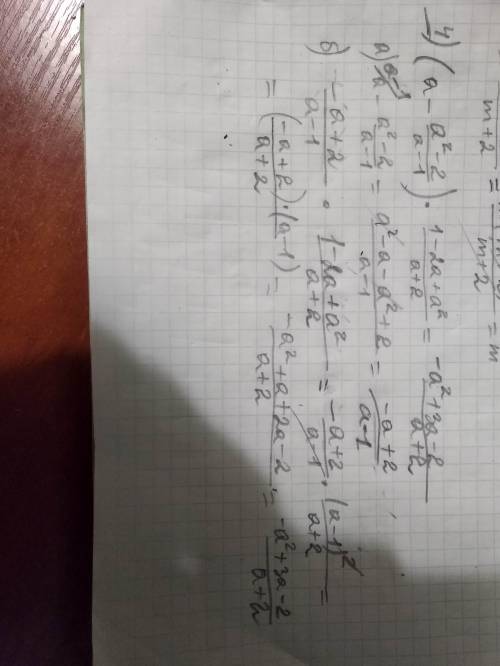 m+2 = m+2 = m
4) (a - (a²-2)/(a-1)) · (1-2a+a²)/(a+2) = (-a²+3a-2)/(a+2)
а) a - (a²-2)/(a-1) = (a²-a-a²+2)/(a-1) = (-a+2)/(a-1)
б) (-a+2)/(a-1) · (1-2a+a²)/(a+2) = (-a+2)/(a-1) · (a-1)²/(a+2) =
= (-a+2)·(a-1)/(a+2) = (-a²+a+2a-2)/(a+2) = (-a²+3a-2)/(a+2)